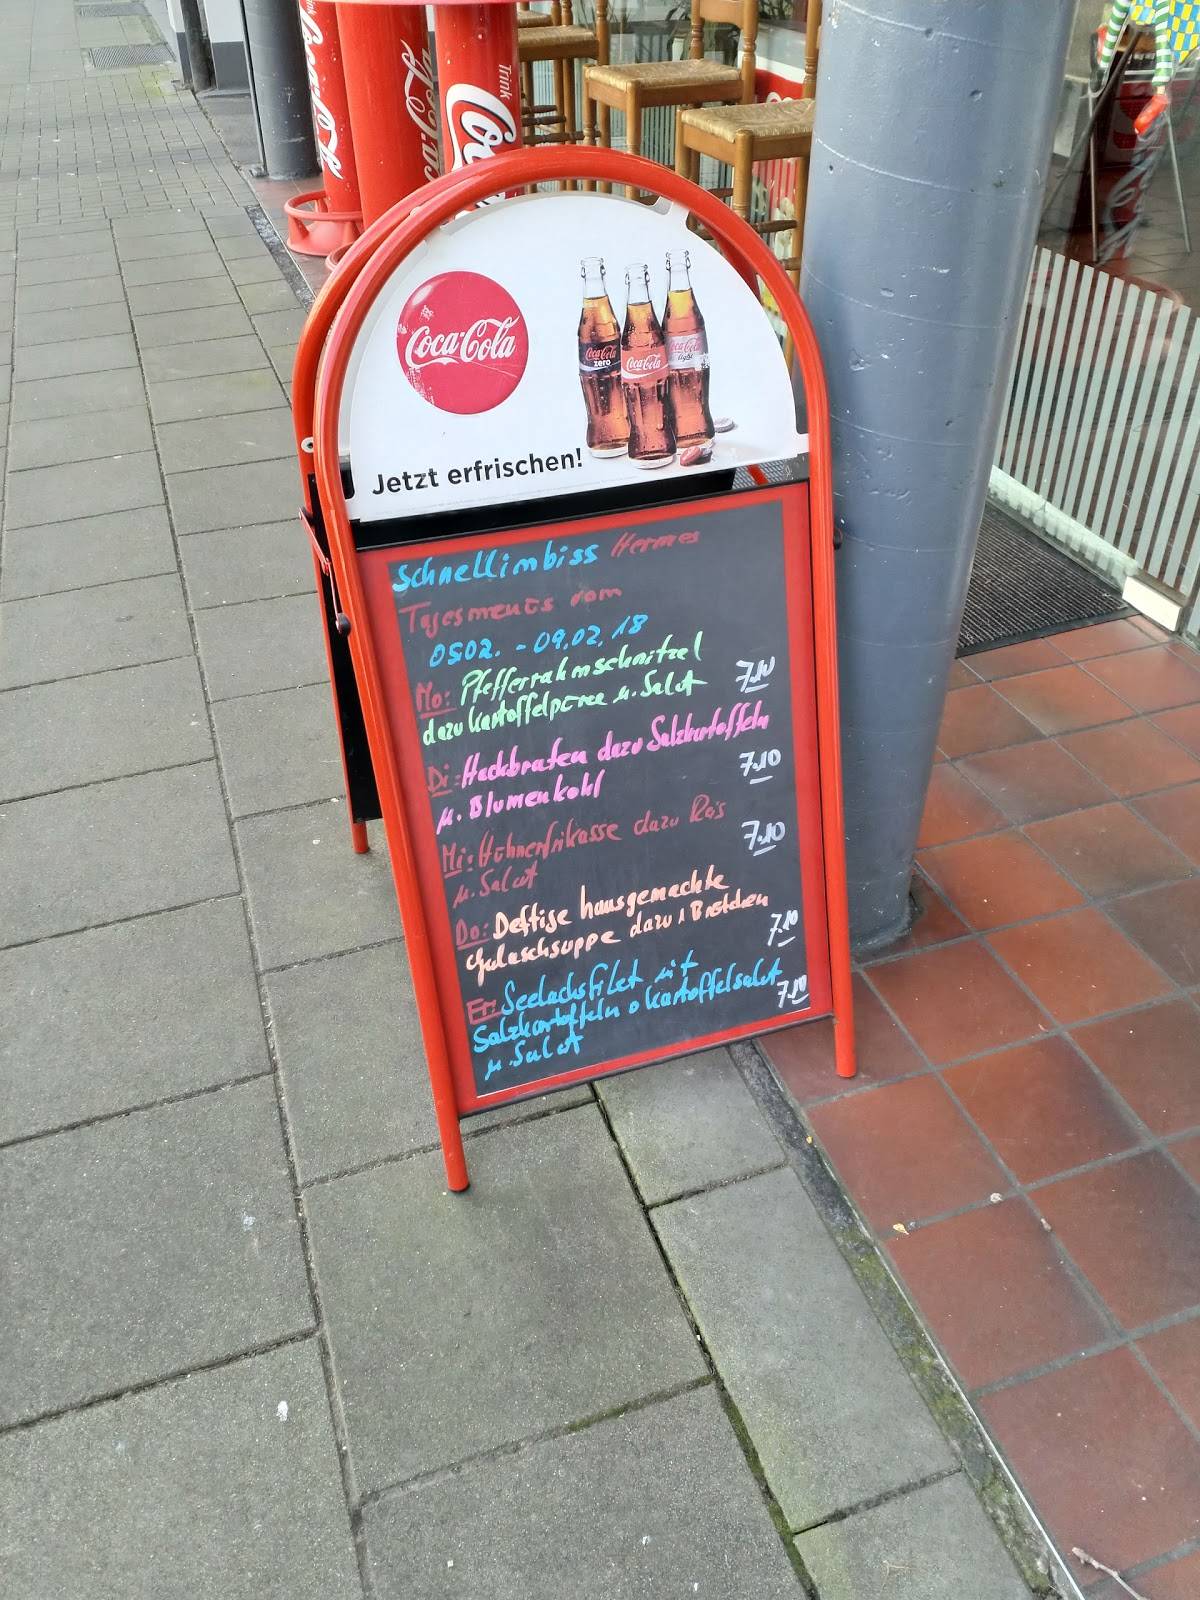 Coca-Cola
Coca-Cola
Trink
Coca-Cola
Coca-Cola zero
Coca-Cola
Coca-Cola light
Jetzt erfrischen!
Schnellimbiss Hermes
Tagesmenüs vom
05.02. - 09.02.18
Mo: Pfefferrahmschnitzel
dazu Kartoffelpüree u. Salat 7.10
Di: Hackbraten dazu Salzkartoffeln
u. Blumenkohl 7.10
Mi: Hühnerfrikasse dazu Reis
u. Salat 7.10
Do: Deftige hausgemachte
Gulaschsuppe dazu 1 Brötchen 7.10
Fr: Seelachsfilet mit
Salzkartoffeln o Kartoffelsalat 7.10
u. Salat